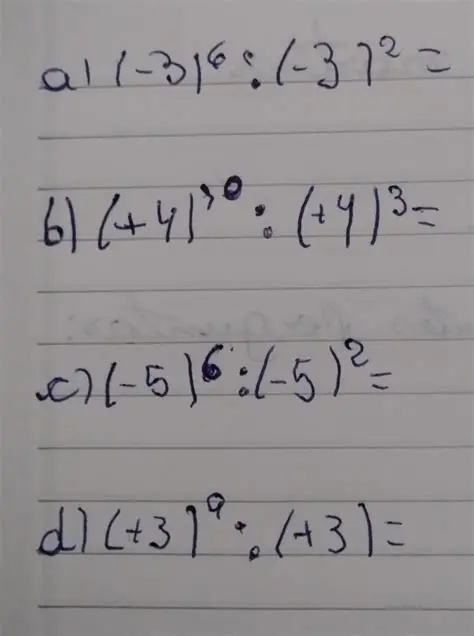 a) (-3)⁶ : (-3)² =
b) (+4)¹⁰ : (+4)³ =
c) (-5)⁶ : (-5)² =
d) (+3)⁹ : (+3) =